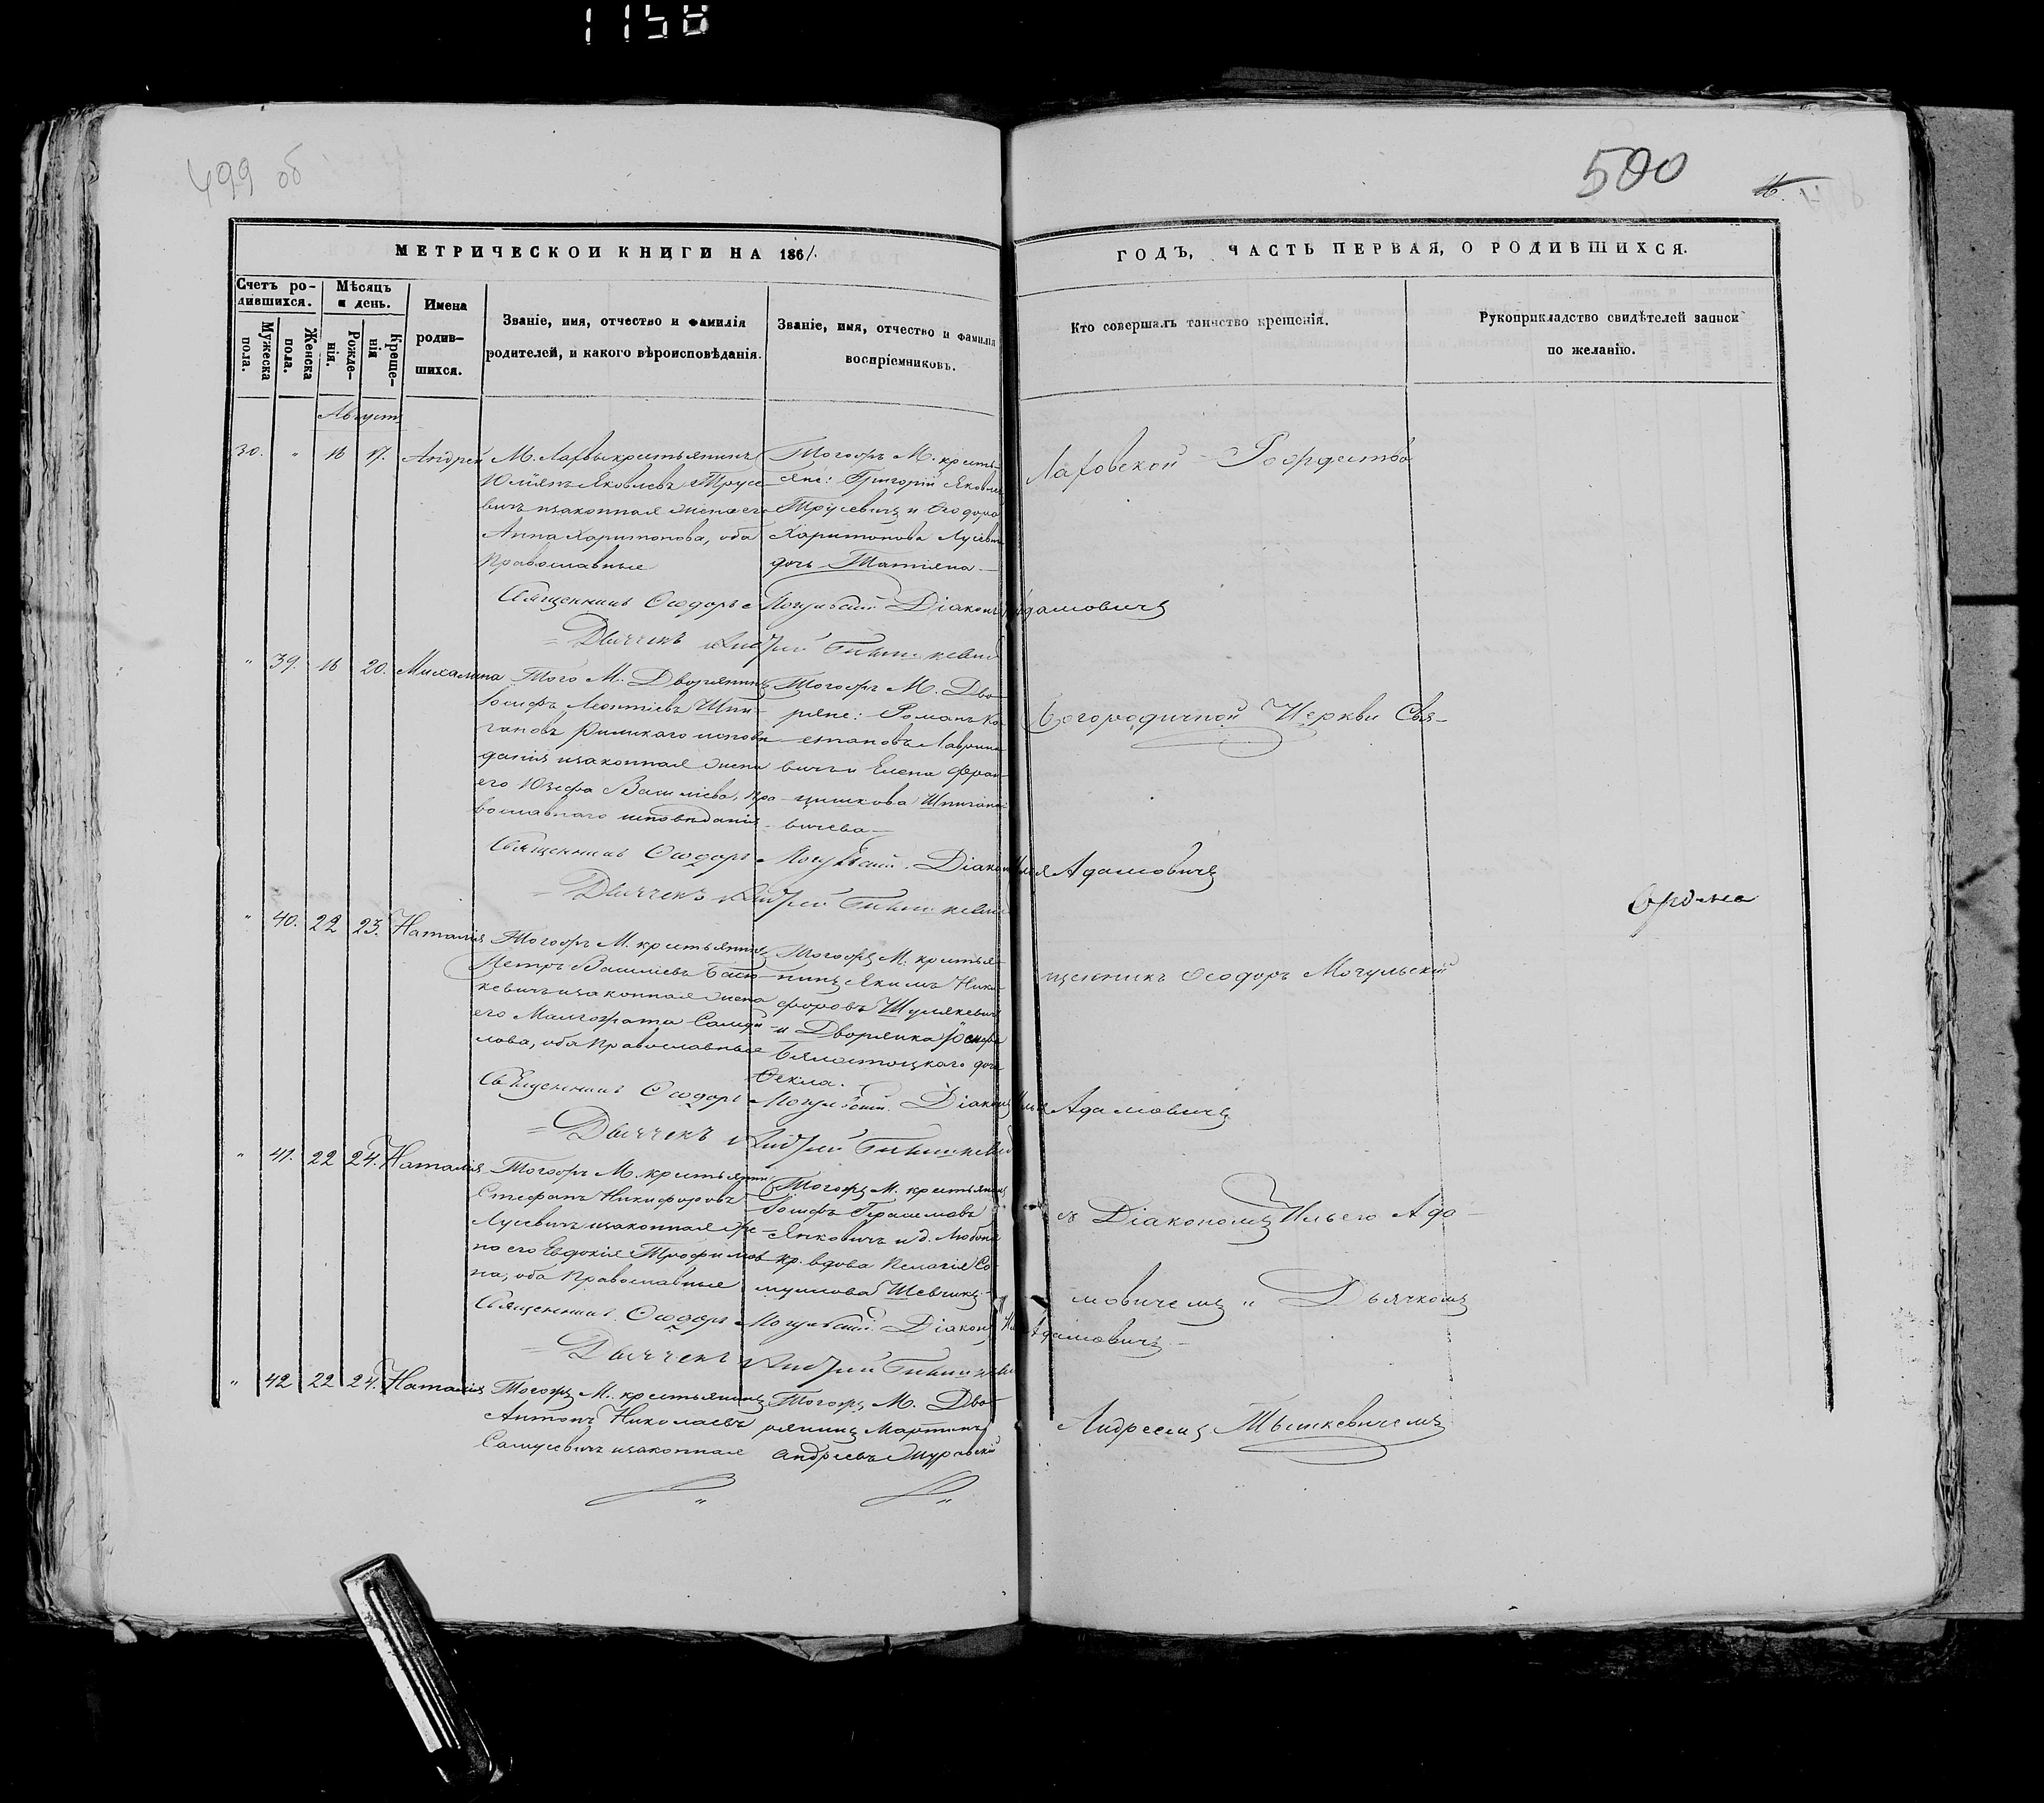 1158
499 об
500
16.
МЕТРИЧЕСКОИ КНИГИ НА 1861.
ГОДЪ, ЧАСТЬ ПЕРВАЯ, О РОДИВШИХСЯ.
Счетъ ро-
дившихся.
Мужеска пола.
Женска пола.
Мѣсяцъ
и день.
Рожде-
нія.
Креще-
нія
Имена
родив-
шихся.
Званіе, имя, отчество и фамилія
родителей, и какого вѣроисповѣданія.
Званіе, имя, отчество и фамилія
воспріемниковъ.
Кто совершалъ таинство крещенія.
Рукоприкладство свидѣтелей записи
по желанію.
Августъ
30. " 16 17. Андрей
М. Лахвы крестьянинъ
Юліянъ Яковлевъ Трусе-
вичъ изаконная жена его
Анна Харитонова, оба
Православные
Тогожъ М. кресть-
яне: Григорій Яковлев
Трусевичъ и Ѳеодора
Харитонова Лусевича
дочь Татіяна
Священникъ Ѳеодоръ Мочульскій Діаконъ Адамовичъ
Дьячекъ Андрей
" 39. 16 20. Михалина
Того М. Дворянинъ
Іосифъ Леонтіевъ Шпи-
гановъ Римскаго исповѣ
данія изаконная жена
его Юзефа Василіева, пра
вославнаго исповѣданія
Тогожъ М. Дво-
ряне: Романъ Ко-
становъ Лаврино
вичъ и Елена Фран-
цишкова Шпигано
вичева
Священникъ Ѳеодоръ Мочульскій. Діаконъ Илья Адамовичъ
Дьячекъ Андрей
" 40. 22 23. Наталія
Тогожъ М. крестьянинъ
Петръ Василіевъ Баси
кевичъ изаконная жена
его Малгожата Самуй
лова, оба Православные
Тогожъ М. крестья-
нинъ Якимъ Ники-
форовъ Шулякевичъ
и Дворянка Іосифа
Бялостоцкаго дочь
Ѳекла.
Священникъ Ѳеодоръ Мочульскій. Діаконъ Илья Адамовичъ
Дьячекъ Андрей
" 41. 22 24. Наталія
Тогожъ М. крестьянинъ
Стефанъ Никифоровъ
Лусевичъ изаконная же
на его Евдокія Трофимов
на, оба Православные
Тогожъ М. крестьянинъ
Іосифъ Герасимовъ
Янковичъ и д. Любани
кр. вдова Пелагія Са
муилова Шевчикъ
Священникъ Ѳеодоръ Мочульскій. Діаконъ Илья Адамовичъ
Дьячекъ Андрей
" 42 22 24. Наталія
Тогожъ М. крестьянинъ
Антонъ Николаевъ
Самусевичъ изаконная
Тогожъ М. Дво-
рянинъ Мартинъ
Андреевъ Журавскій
Лаховской Рождество
Богородичной Церкви Свя-
щенникъ Ѳеодоръ Мочульскій
съ Діакономъ Ильею Ада-
мовичемъ и Дьячкомъ
Андреемъ Тышкевичемъ